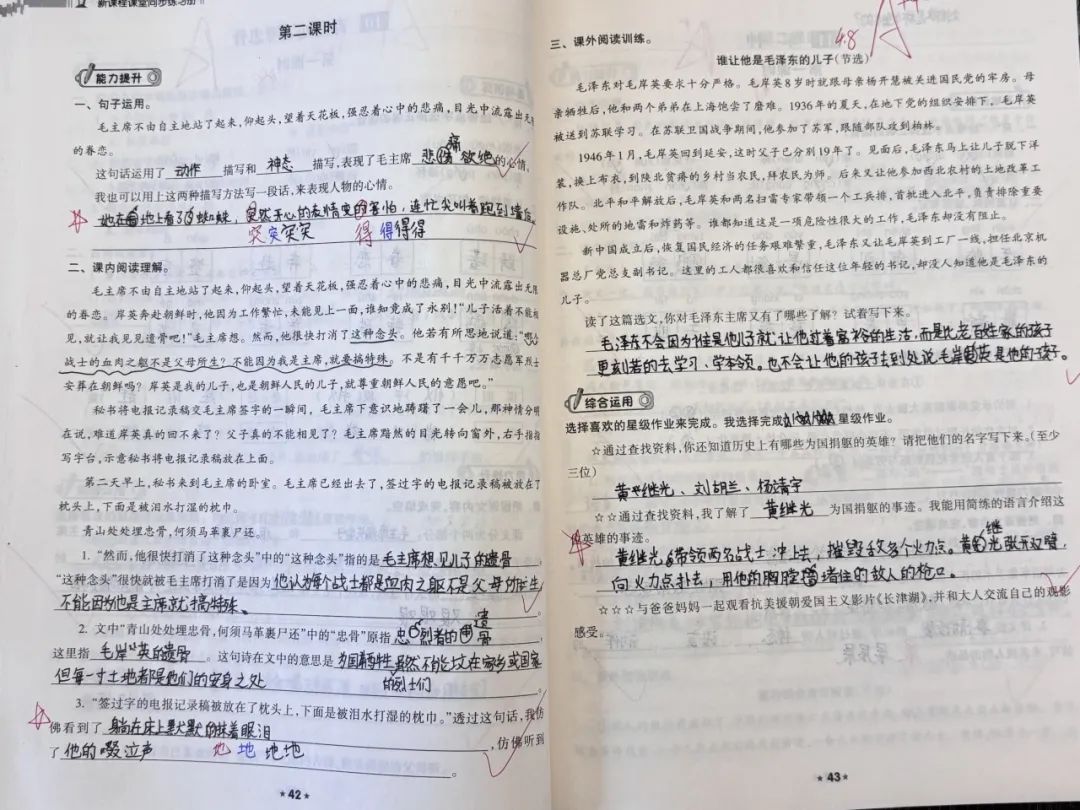 新课程课堂同步练习册
第二课时
能力提升
一、句子运用。
毛主席不由自主地站了起来,仰起头,望着天花板,强忍着心中的悲痛,目光中流露出无
的眷恋。
这句话运用了 动作 描写和 神态 描写,表现了毛主席 悲痛欲绝 的心情。
我也可以用上这两种描写方法写一段话,来表现人物的心情。
她在地上看了 突然开心的表情变的害怕,连忙尖叫着跑到墙
突突突突 得得得得
二、课内阅读理解。
毛主席不由自主地站了起来,仰起头,望着天花板,强忍着心中的悲痛,目光中流露出无限
的眷恋。岸英奔赴朝鲜时,他因为工作繁忙,未能见上一面,谁知竟成了永别!“儿子活着不能相
见,就让我见见遗骨吧!”毛主席想。然而,他很快打消了这种念头。他若有所思地说道:“哪个
战士的血肉之躯不是父母所生?不能因为我是主席,就要搞特殊。不是有千千万万志愿军烈士
安葬在朝鲜吗?岸英是我的儿子,也是朝鲜人民的儿子,就尊重朝鲜人民的意愿吧。”
秘书将电报记录稿交毛主席签字的一瞬间,毛主席下意识地踌躇了一会儿,那神情分明
在说,难道岸英真的回不来了?父子真的不能相见了?毛主席黯然的目光转向窗外,右手指指
写字台,示意秘书将电报记录稿放在上面。
第二天早上,秘书来到毛主席的卧室。毛主席已经出去了,签过字的电报记录稿被放在了
枕头上,下面是被泪水打湿的枕巾。
青山处处埋忠骨,何须马革裹尸还。
1. “然而,他很快打消了这种念头”中的“这种念头”指的是 毛主席想见儿子的遗骨
“这种念头”很快就被毛主席打消了是因为 他认为每个战士都是血肉之躯不是父母所生
不能因为他是主席就搞特殊、
2. 文中“青山处处埋忠骨,何须马革裹尸还”中的“忠骨”原指 忠烈者的遗骨
这里指 毛岸英的遗骨 。这句诗在文中的意思是 为国牺牲的烈士们虽然不能埋在家乡或国家
但每一寸土地都是他们的安身之处
3. “签过字的电报记录稿被放在了枕头上,下面是被泪水打湿的枕巾。”透过这句话,我仿
佛看到了 躺在床上默默的抹着眼泪 ,仿佛听到
了 他的啜泣声 地 地 地地 。
42
三、课外阅读训练。
48
谁让他是毛泽东的儿子(节选)
毛泽东对毛岸英要求十分严格。毛岸英8岁时就跟母亲杨开慧被关进国民党的牢房。母
亲牺牲后,他和两个弟弟在上海饱尝了磨难。1936年的夏天,在地下党的组织安排下,毛岸英
被送到苏联学习。在苏联卫国战争期间,他参加了苏军,跟随部队攻到柏林。
1946年1月,毛岸英回到延安,这时父子已分别19年了。见面后,毛泽东马上让儿子脱下洋
装,换上布衣,到陕北贫瘠的乡村当农民,拜农民为师。后来又让他参加西北农村的土地改革工
作队。北平和平解放后,毛岸英和两名扫雷专家带领一个工兵排,首批进入北平,负责排除重要
设施、处所的地雷和炸药等。谁都知道这是一项危险性很大的工作,毛泽东却没有阻止。
新中国成立后,恢复国民经济的任务艰难繁重,毛泽东又让毛岸英到工厂一线,担任北京机
器总厂党总支副书记。这里的工人都很喜欢和信任这位年轻的书记,却没人知道他是毛泽东的
儿子。
读了这篇选文,你对毛泽东主席又有了哪些了解?试着写下来。
毛泽东不会因为谁是他儿子就让他过着富裕的生活,而是比老百姓家的孩子
更刻苦的去学习、学本领。也不会让他的孩子去到处说毛岸英是他的孩子。
综合运用
选择喜欢的星级作业来完成。我选择完成 星级作业。
☆通过查找资料,你还知道历史上有哪些为国捐躯的英雄?请把他们的名字写下来。(至少
三位)
黄继光、刘胡兰、杨靖宇
☆☆通过查找资料,我了解了 黄继光 为国捐躯的事迹。我能用简练的语言介绍这
英雄的事迹。
黄继光带领两名战士冲上去,摧毁敌多个火力点。黄继光张开双臂,
向火力点扑去,用他的胸膛堵住的敌人的枪口。
☆☆☆与爸爸妈妈一起观看抗美援朝爱国主义影片《长津湖》,并和大人交流自己的观影
感受。
43